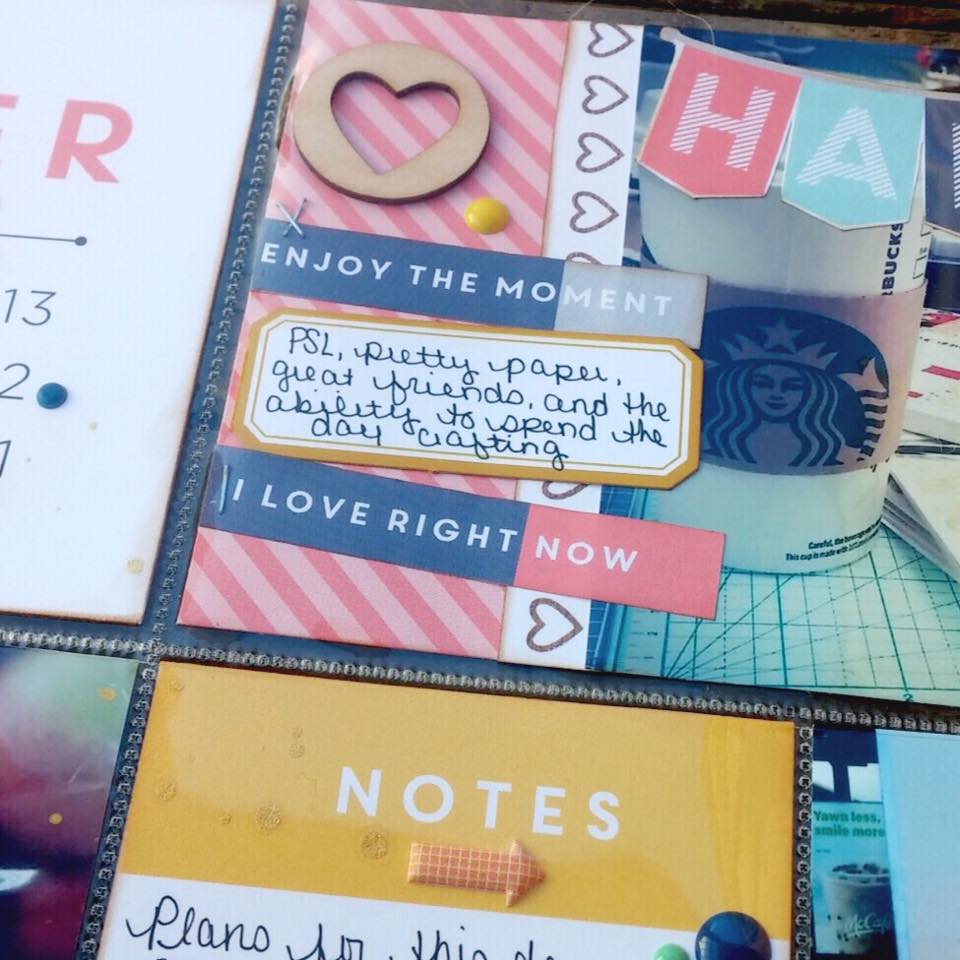 ER
13
2
1
HA
RBUCKS
ENJOY THE MOMENT
PSL, pretty paper,
great friends, and the
ability to spend the
day crafting
I LOVE RIGHT NOW
Careful, the
This cup is made with
NOTES
Plans for this
Yawn less,
smile more
McCafé